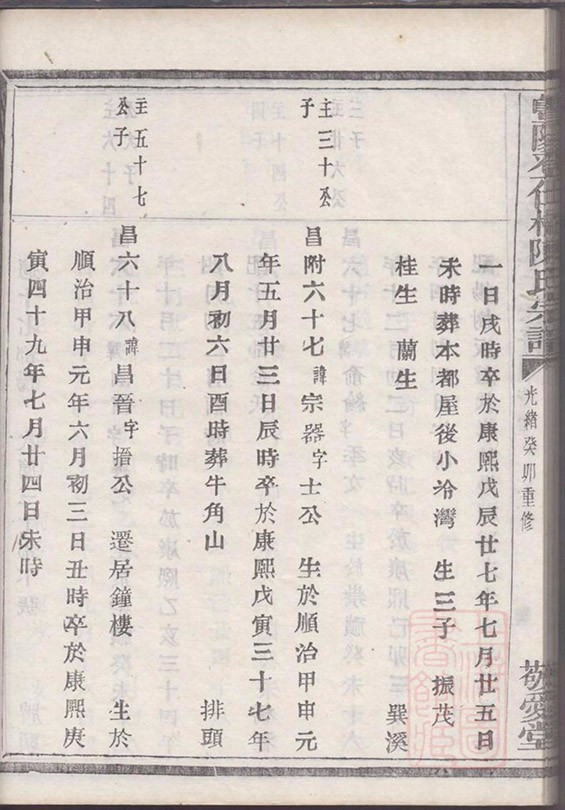 陳氏宗譜
光緒癸卯重修
敬愛堂
日戌時卒於康熙戊辰廿七年七月廿五日
未時葬本都屋後小冷灣 生三子 振茂
桂生 蘭生 巽溪
主三十公
子
昌附六十七諱宗器字士公 生於順治甲申元
年五月廿三日辰時卒於康熙戊寅三十七年
八月初六日酉時葬牛角山 排頭
主五十七
公子
昌六十八諱昌晉字搢公 遷居鐘樓 生於
順治甲申元年六月初三日丑時卒於康熙庚
寅四十九年七月廿四日未時